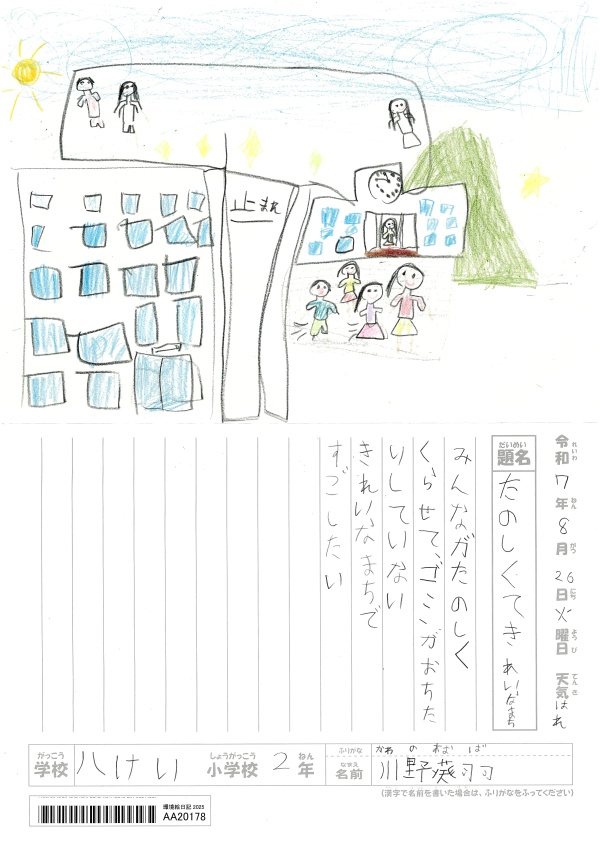 止まれ
令和7年8月26日火曜日 天気はれ
れいわ ねん がつ にち ようび てんき
だいめい
題名
たのしくてきれいなまち
みんながたのしく
くらせて、ゴミンがおちた
りしていない
きれいなまちで
すごしたい
がっこう しょうがっこう ねん ふりがな かわ の おと は
学校 八けい 小学校 2年 なまえ 名前 川野
(漢字で名前を書いた場合は、ふりがなをふってください)
環境絵日記 2025
AA20178